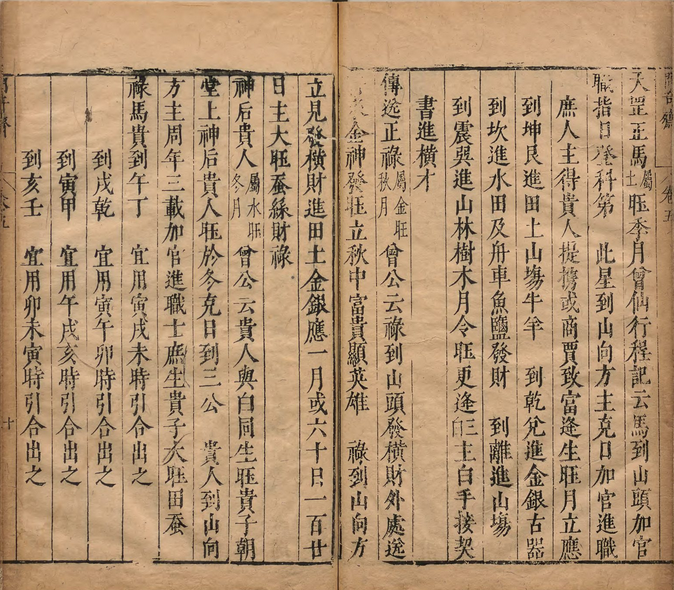 天罡正馬屬土旺季月曾仙行程記云馬到山頭加官
職指日登科第 此星到山向方主克日加官進職
庶人主得貴人提攜或商賈致富逢生旺月立應
到坤艮進田土山塲牛羊 到乾兌進金銀古器
到坎進水田及舟車魚鹽發財 到離進山塲
到震巽進山林樹木月令旺更逢三主白手接契
書進橫才
傳送正祿屬金旺秋月 曾公云祿到山頭發橫財外處送
金神發旺立秋中富貴顯英雄 祿到山向方
立見發橫財進田土金銀應一月或六十日一百廿
日主大旺蚕絲財祿
神后貴人屬水旺冬月 曾公云貴人與白同生旺貴子朝
堂上神后貴人旺於冬克日到三公 貴人到山向
方主周年三載加官進職士庶生貴子大旺田蚕
祿馬貴到午丁 宜用寅戌未時引合出之
到戌乾 宜用寅午卯時引合出之
到寅甲 宜用午戌亥時引合出之
到亥壬 宜用卯未寅時引合出之
卷五
十